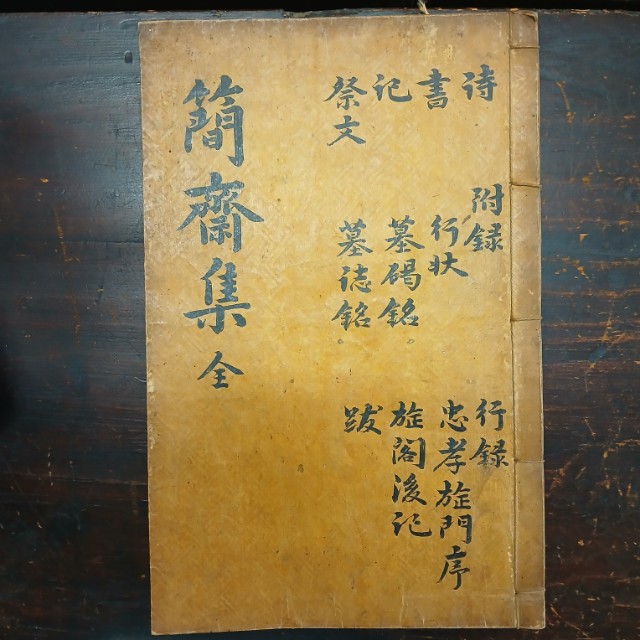 簡齋集 全
詩
書
記
祭文
附録
行状
墓碣銘。
墓誌銘。
行録
忠孝旌門序
旌閣後記
跋